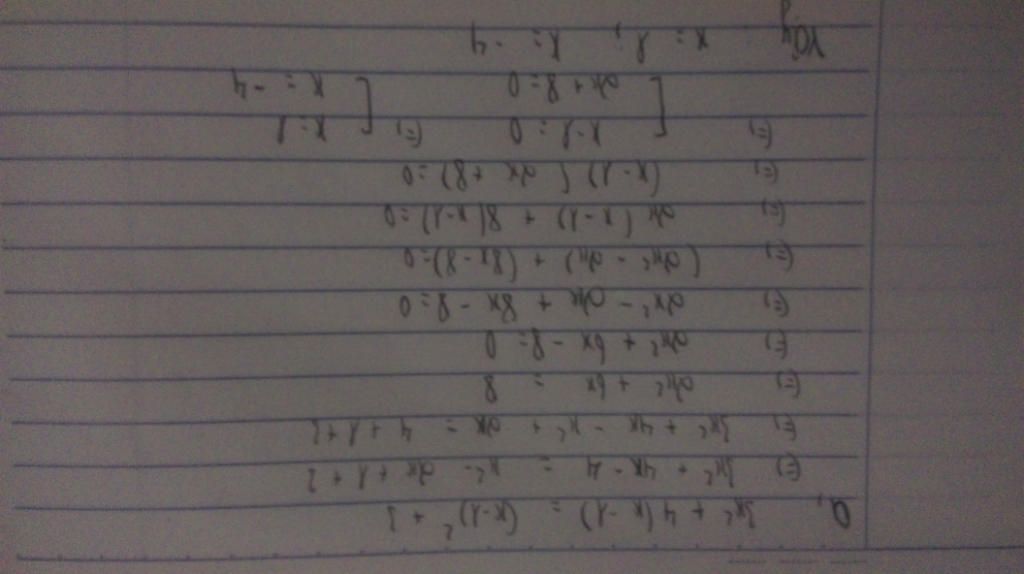 a, 3x² + 4(x-1) = (x-1)² + 3
(=) 3x² + 4x - 4 = x² - 2x + 1 + 3
(=) 3x² + 4x - x² + 2x = 4 + 1 + 3
(=) 2x² + 6x = 8
(=) 2x² + 6x - 8 = 0
(=) 2x² - 2x + 8x - 8 = 0
(=) (2x² - 2x) + (8x - 8) = 0
(=) 2x (x-1) + 8(x-1) = 0
(=) (x-1) (2x + 8) = 0
(=) [ x-1 = 0 (=) [ x = 1
2x + 8 = 0 x = -4
Vậy x = 1; x = -4